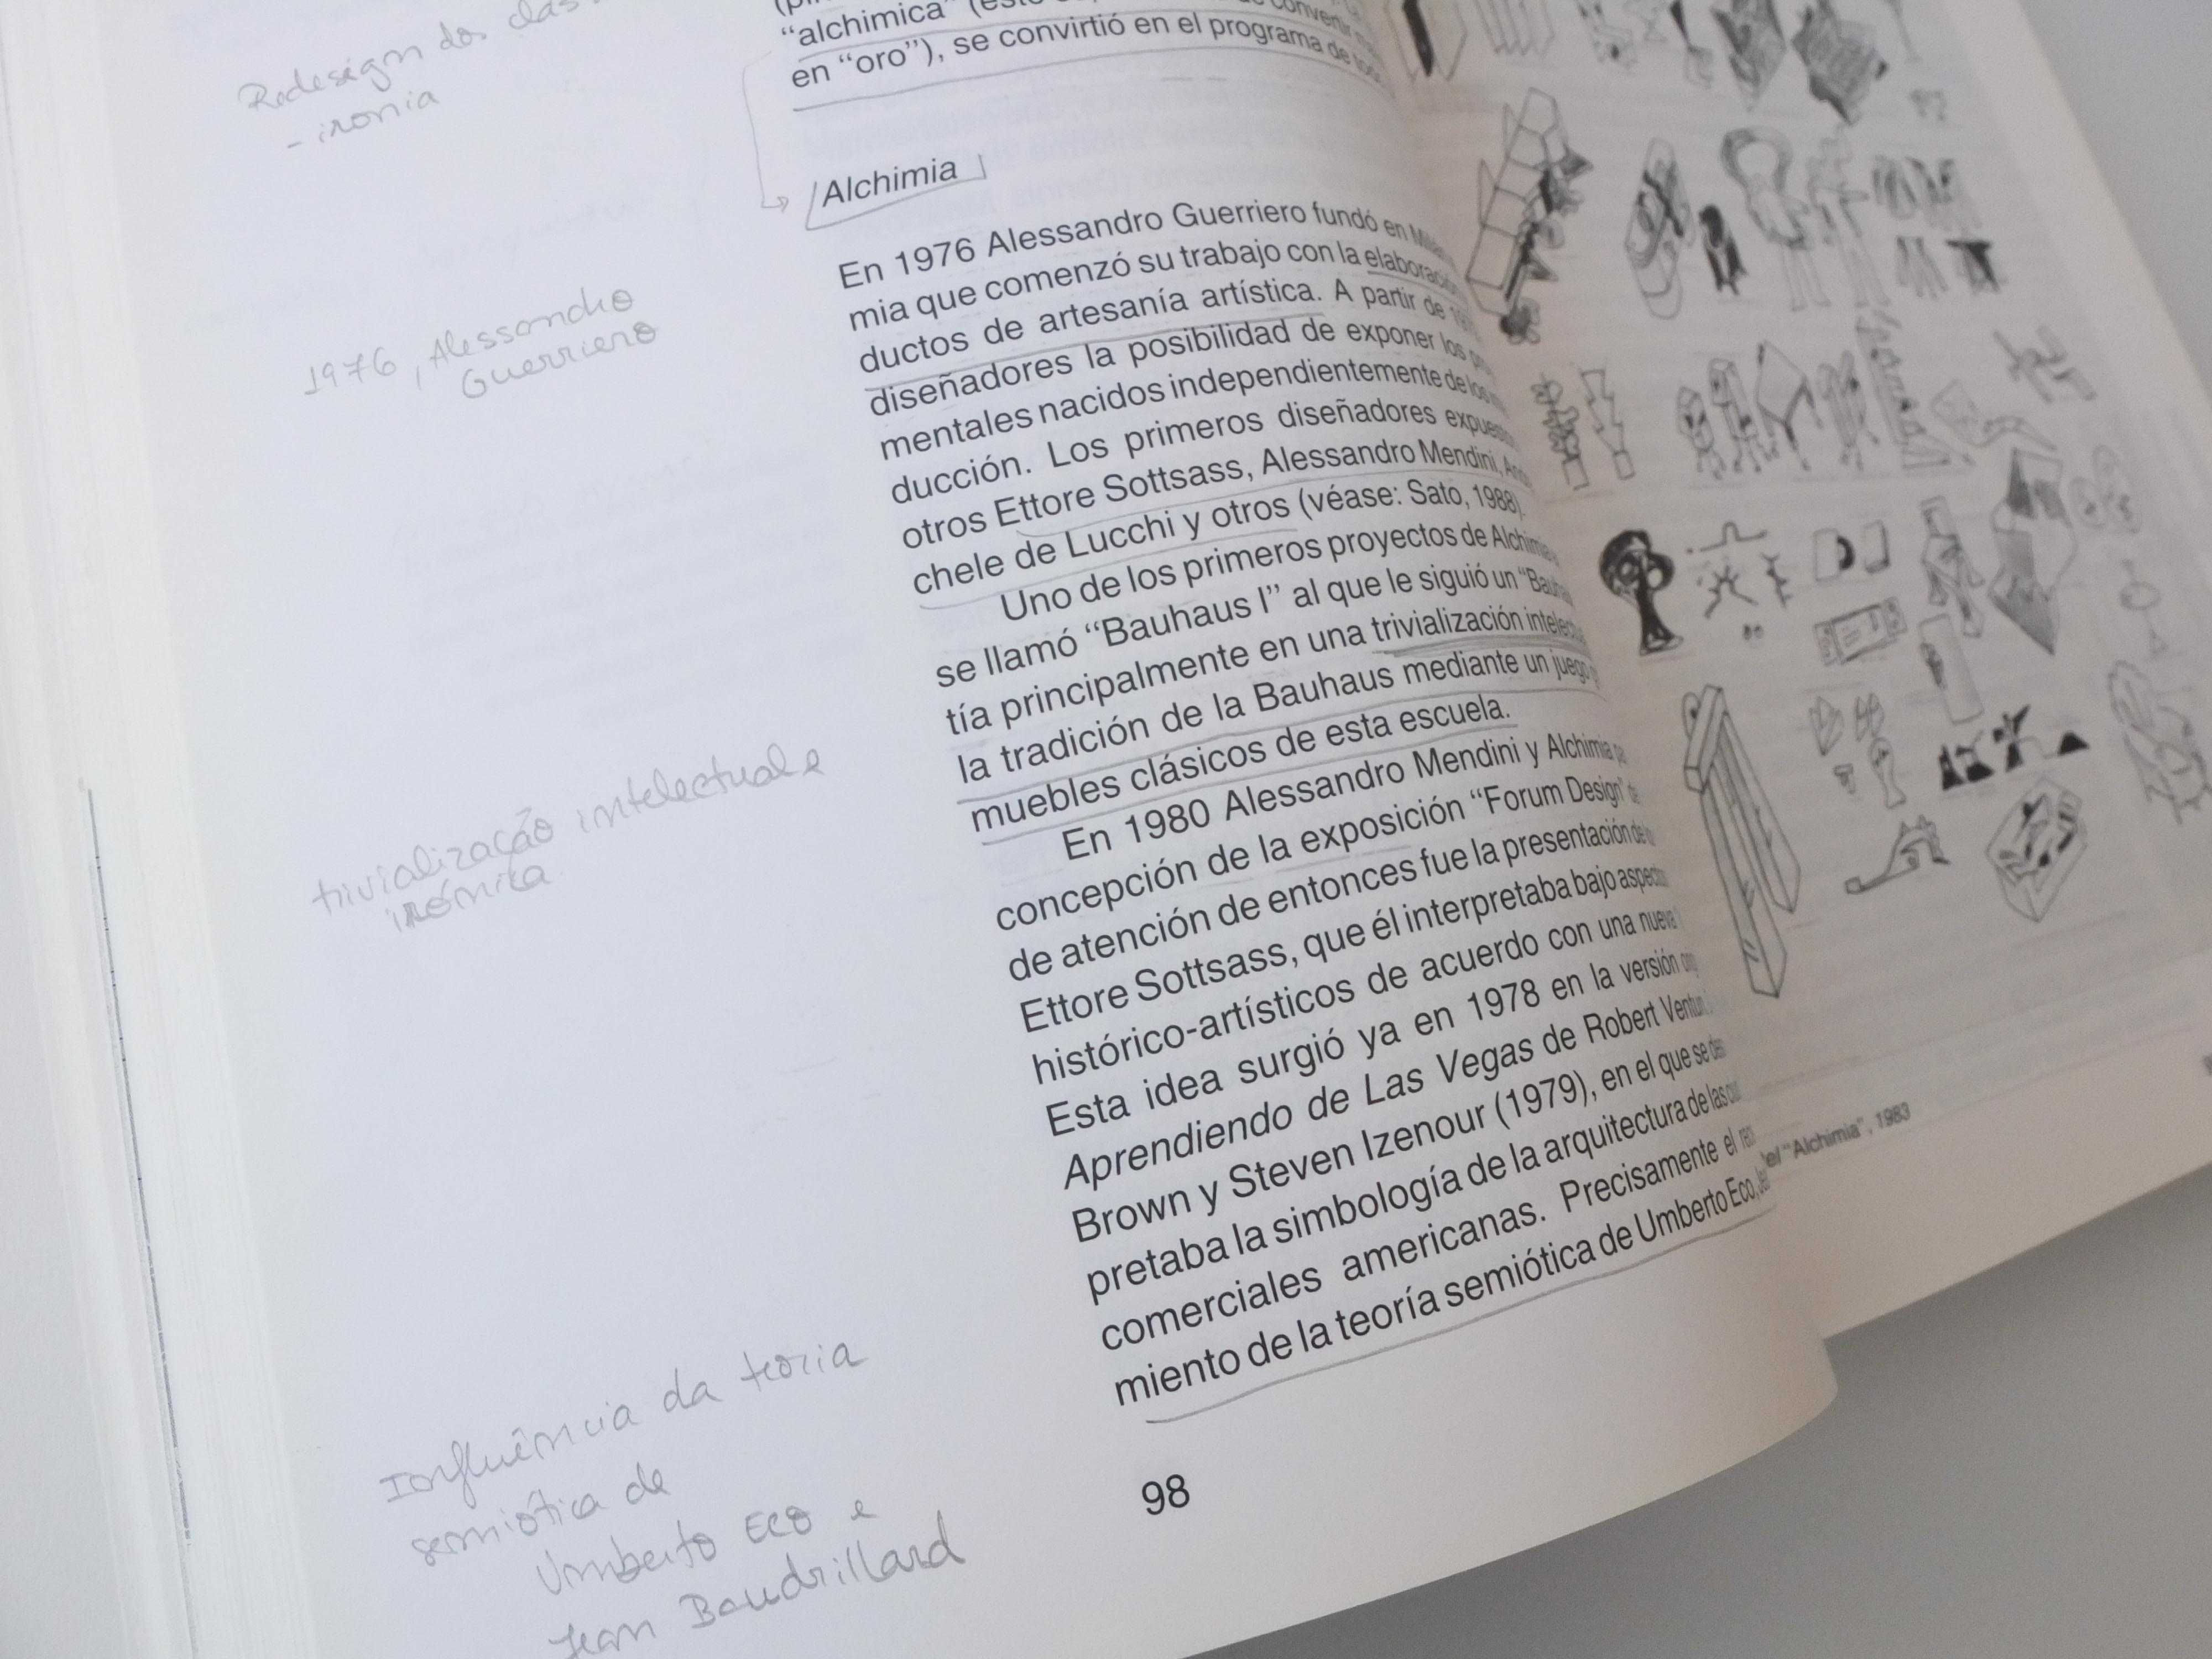 Redesign dos
- ironia
1976, Alessandro
Guerriero
trivialização intelectual e
irónica
Influência da teoria
semiótica de
Umberto Eco e
Jean Baudrillard
"alchimica"
en "oro"), se convirtió en el programa de
Alchimia
En 1976 Alessandro Guerriero fundó en
mia que comenzó su trabajo con la
ductos de artesanía artística. A partir de
diseñadores la posibilidad de exponer los
mentales nacidos independientemente de los
ducción. Los primeros diseñadores
otros Ettore Sottsass, Alessandro Mendini,
chele de Lucchi y otros (véase: Sato, 1988).
Uno de los primeros proyectos de
se llamó "Bauhaus I" al que le siguió un
tía principalmente en una trivialización
la tradición de la Bauhaus mediante un juego
muebles clásicos de esta escuela.
En 1980 Alessandro Mendini y Alchimia
concepción de la exposición "Forum Design"
de atención de entonces fue la presentación de
Ettore Sottsass, que él interpretaba bajo
histórico-artísticos de acuerdo con una nueva
Esta idea surgió ya en 1978 en la versión
Aprendiendo de Las Vegas de Robert
Brown y Steven Izenour (1979), en el que se
pretaba la simbología de la arquitectura de las
comerciales americanas. Precisamente el
miento de la teoría semiótica de Umberto Eco,
98
"Alchimia", 1983